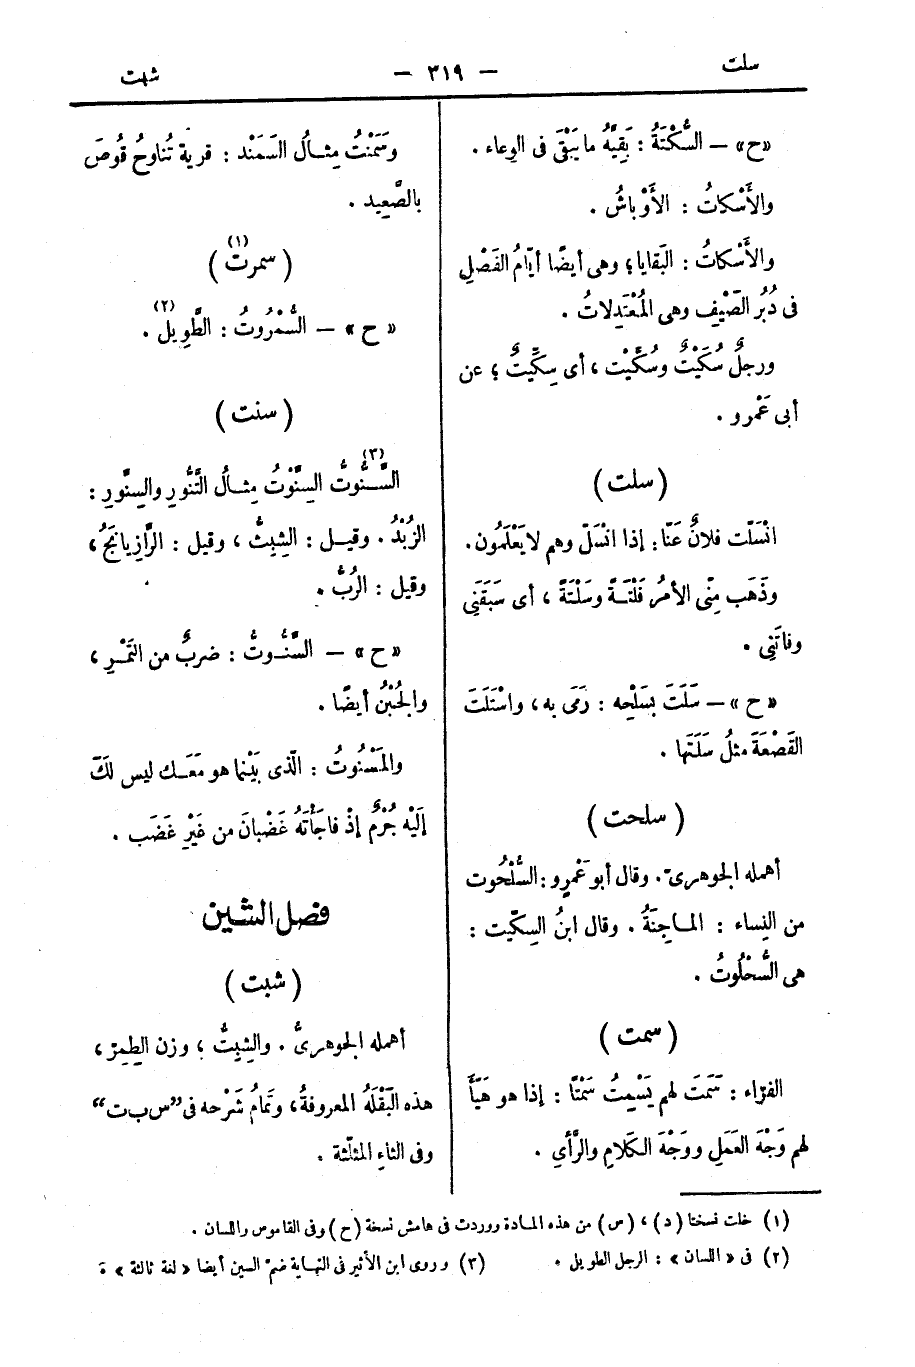 سلت
— ٣١٩ —
شهت
«ح» — السُّكْتَةُ : بَقِيَّةُ ما يَبْقَى فى الوِعاء .
والأَسْكاتُ : الأَوْباشُ .
والأَسْكاتُ : البَقايا؛ وهى أيضًا أيّامُ الفَصْلِ
فى دُبُرِ الصَّيْفِ وهى المُعْتَدِلاتُ .
ورجلٌ سُكَيْتٌ وسُكَّيْت ، أى سِكِّيتٌ ؛ عن
أبى عَمْرو .
( سلت )
انْسَلَتَ فلانٌ عَنّا : إذا انْسَلَّ وهم لا يَعْلَمُون .
وذَهَب مِنّى الأمرُ فَلْتَــةً وسَلْتَةً ، أى سَبَقَنِى
وفاتَنِى .
«ح» — سَلَتَ بسَلْحِه : رَمَى به ، واسْتَلَتَ
القَصْعَةَ مثلُ سَلَتَها .
( سلحت )
أهمله الجوهرىّ . وقال أبو عَمْرٍو : السُّلْحُوت
من النِّساء : المـاجِنَةُ . وقال ابنُ السِّكِّيت :
هى السُّحْلُوتُ .
( سمت )
الفرّاء : سَمَتَ لهم يَسْمِتُ سَمْتًا : إذا هو هَيَّأَ
لهم وَجْهَ العَمَلِ ووَجْهَ الكَلامِ والرَّأىِ .
وسَمَنْتُ مِثـالُ السَمَنْد : قرية تُناوحُ قُوصَ
بالصَّعِيد .
( سمرت (١) )
« ح » — السُّمْرُوتُ : الطَّوِيل (٢) .
( سنت )
السَّـنُّوتُ (٣) السِنَّوْتُ مِثـالُ التَّنُّورِ والسِنَّورِ :
الزُبْدُ . وقيـل : الشِبِثُّ ، وقيل : الرَّازِيانَجُ ،
وقيل : الرُبُّ .
« ح » — السَّنُّـوتُ : ضربٌ من التَمْـرِ ،
والجُبْنُ أيضًا .
والمَسْنُوتُ : الّذى بَيْنما هو مَعَـك ليس لكَ
إلَيْه جُرْمٌ إذْ فاجَأْتَهُ غَضْبانَ من غَيْرِ غَضَب .
فصل الشين
( شبت )
أهمله الجوهرىُّ . والشِبِتُّ ؛ وزن الطِمِرّ ،
هذه البَقْلَةُ المعروفةُ ، وتَمامُ شَرْحه فى "س ب ت"
وفى الثاء المثلّثة .
(١) خلت نسختا (د) ، (س) من هذه المـادة ووردت فى هامش نسخة (ح) وفى القاموس واللسان .
(٢) فى « اللسان » : الرجل الطويل .
(٣) وروى ابن الأثير فى النهاية ضمّ السين أيضا « لغة ثالثة » ة